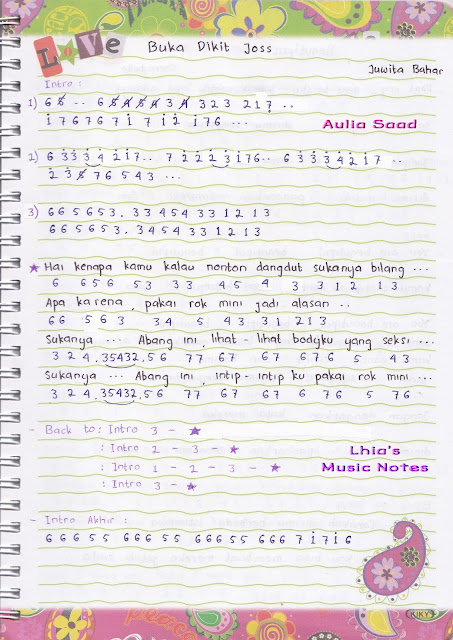 LOVE
Buka Dikit Joss
Juwita Bahar
Intro :
1) 6 5̸ .. 6 5̸ 5̸ 5̸ 4̸ 3 4̸ 3 2 3 2 1 7̣ ..
i̇ 7 6 7 6 7 i̇ 7 i̇ 2̇ i̇ 7 6 ...
Aulia Saad
2) 6 3̇ 3̇ 3̇ 4̇ 2̇ i̇ 7 .. 7 2̇ 2̇ 2̇ 3̇ i̇ 7 6 .. 6 3̇ 3̇ 3̇ 4̇ 2̇ i̇ 7 ..
2 3 5̸ 7 6 5 4 3 ...
3) 6 6 5 6 5 3 . 3 3 4 5 4 3 3 1 2 1 3
6 6 5 6 5 3 . 3 4 5 4 3 3 1 2 1 3
★ Hai kenapa kamu kalau nonton dangdut sukanya bilang ...
6 6 5 6 5 3 3 3 4 5 4 3 3 1 2 1 3
Apa karena, pakai rok mini jadi alasan ..
6 6 5 6 3 3 4 5 4 3 3 1 2 1 3
Sukanya ... Abang ini, lihat - lihat bodyku yang seksi ...
3 2 4 . 3 5 4 3 2 . 5 6 7 7 6 7 6 7 6 7 6 5 4 3
Sukanya ... Abang ini, intip - intip ku pakai rok mini ...
3 2 4 . 3 5 4 3 2 . 5 6 7 7 6 7 6 7 6 7 6 5 7 6
- Back to : Intro 3 - ★
: Intro 2 - 3 - ★
: Intro 1 - 2 - 3 - ★
: Intro 3 - ★
Lhia's
Music Notes
- Intro Akhir :
6 6 6 5 5 6 6 6 5 5 6 6 6 5 5 6 6 6 7 i̇ 7 i̇ 6
KIKY